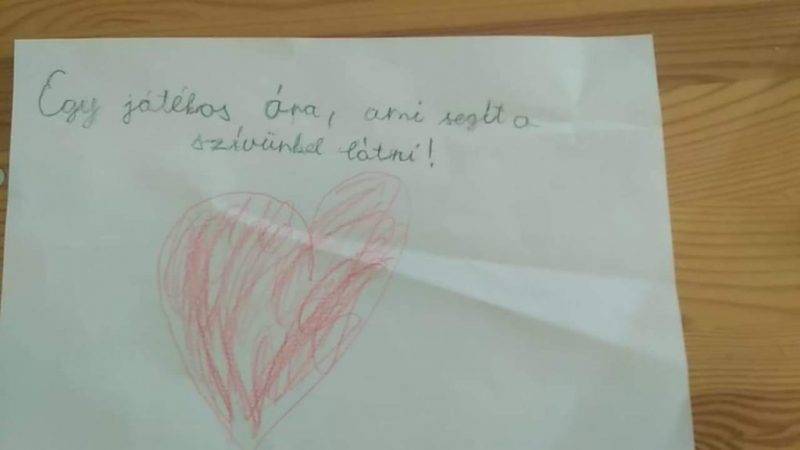 Egy játékos óra, ami segít a
szívünkel látni!